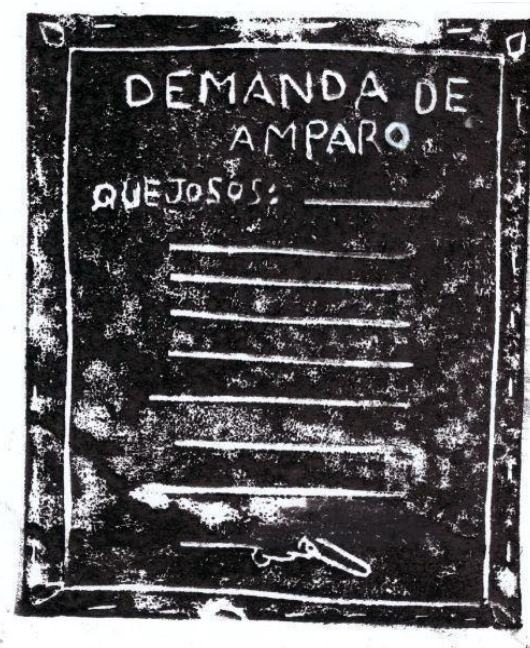 DEMANDA DE
AMPARO
QUEJOSOS: